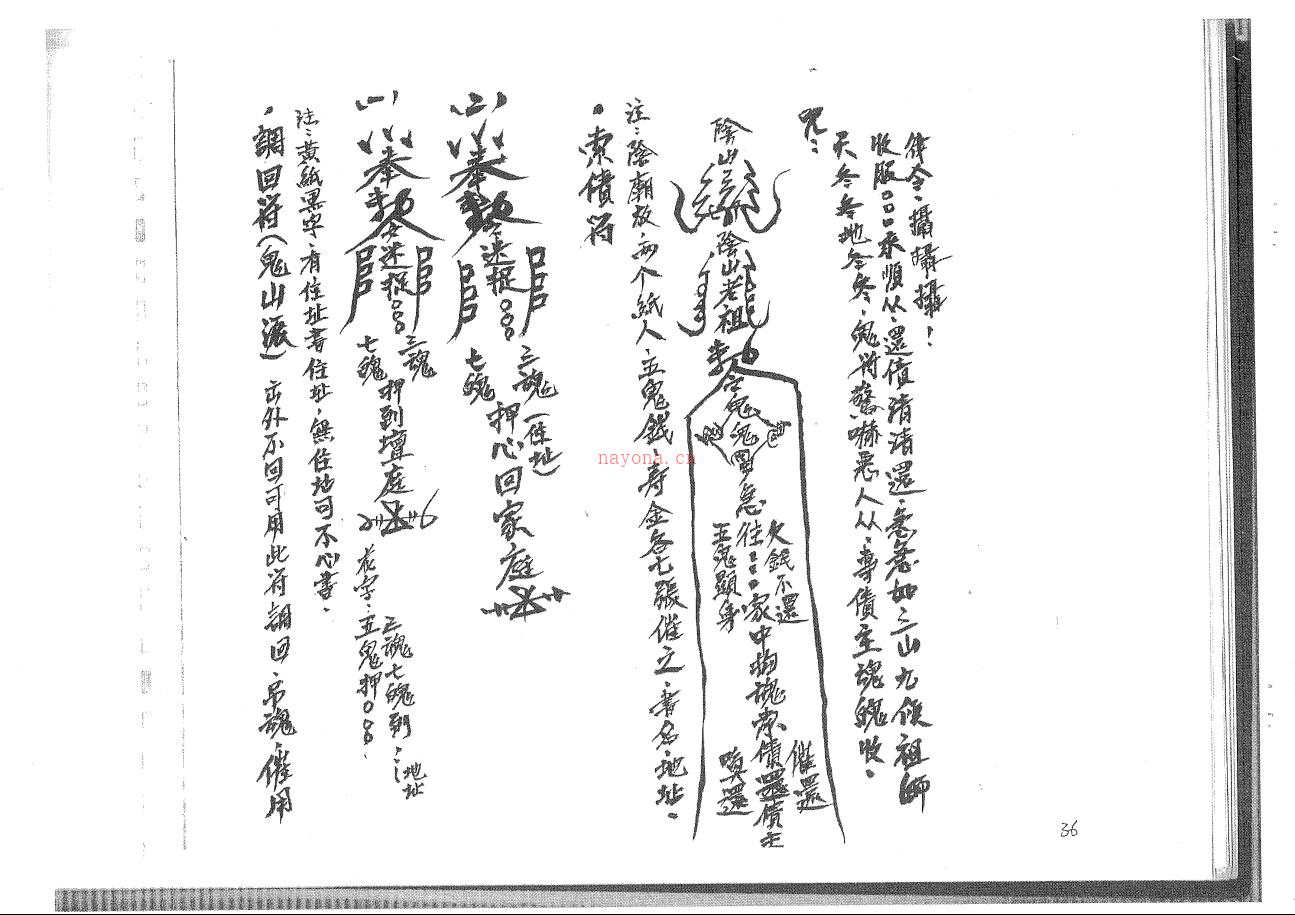 ・調回符(鬼山派) 出外不回可用此符調回、吊魂、催用
注:黃紙黑字、有住址書住址、無住址可不必書。
奉勅令速捉○○○ 三魂 七魄 押到壇庭
花字:五鬼押○○○、
三魂七魄到…地址
奉勅令速捉○○○ 三魂 七魄 (住址) 押心回家庭
・索債符
注:陰廟敕、兩个紙人、五鬼錢、壽金各七張催之、書名、地址。
陰山 陰山老祖
勅令 急往○○○家中拘魂索債還債主
欠錢不還
五鬼顯身
催還
咒:
天冬冬地冬冬、鬼符驚嚇惡人从、專債主魂魄收。
收服○○○來順从、還債清清還、急急如三山九侯祖師
律令、攝攝攝!
36
nayona.cn